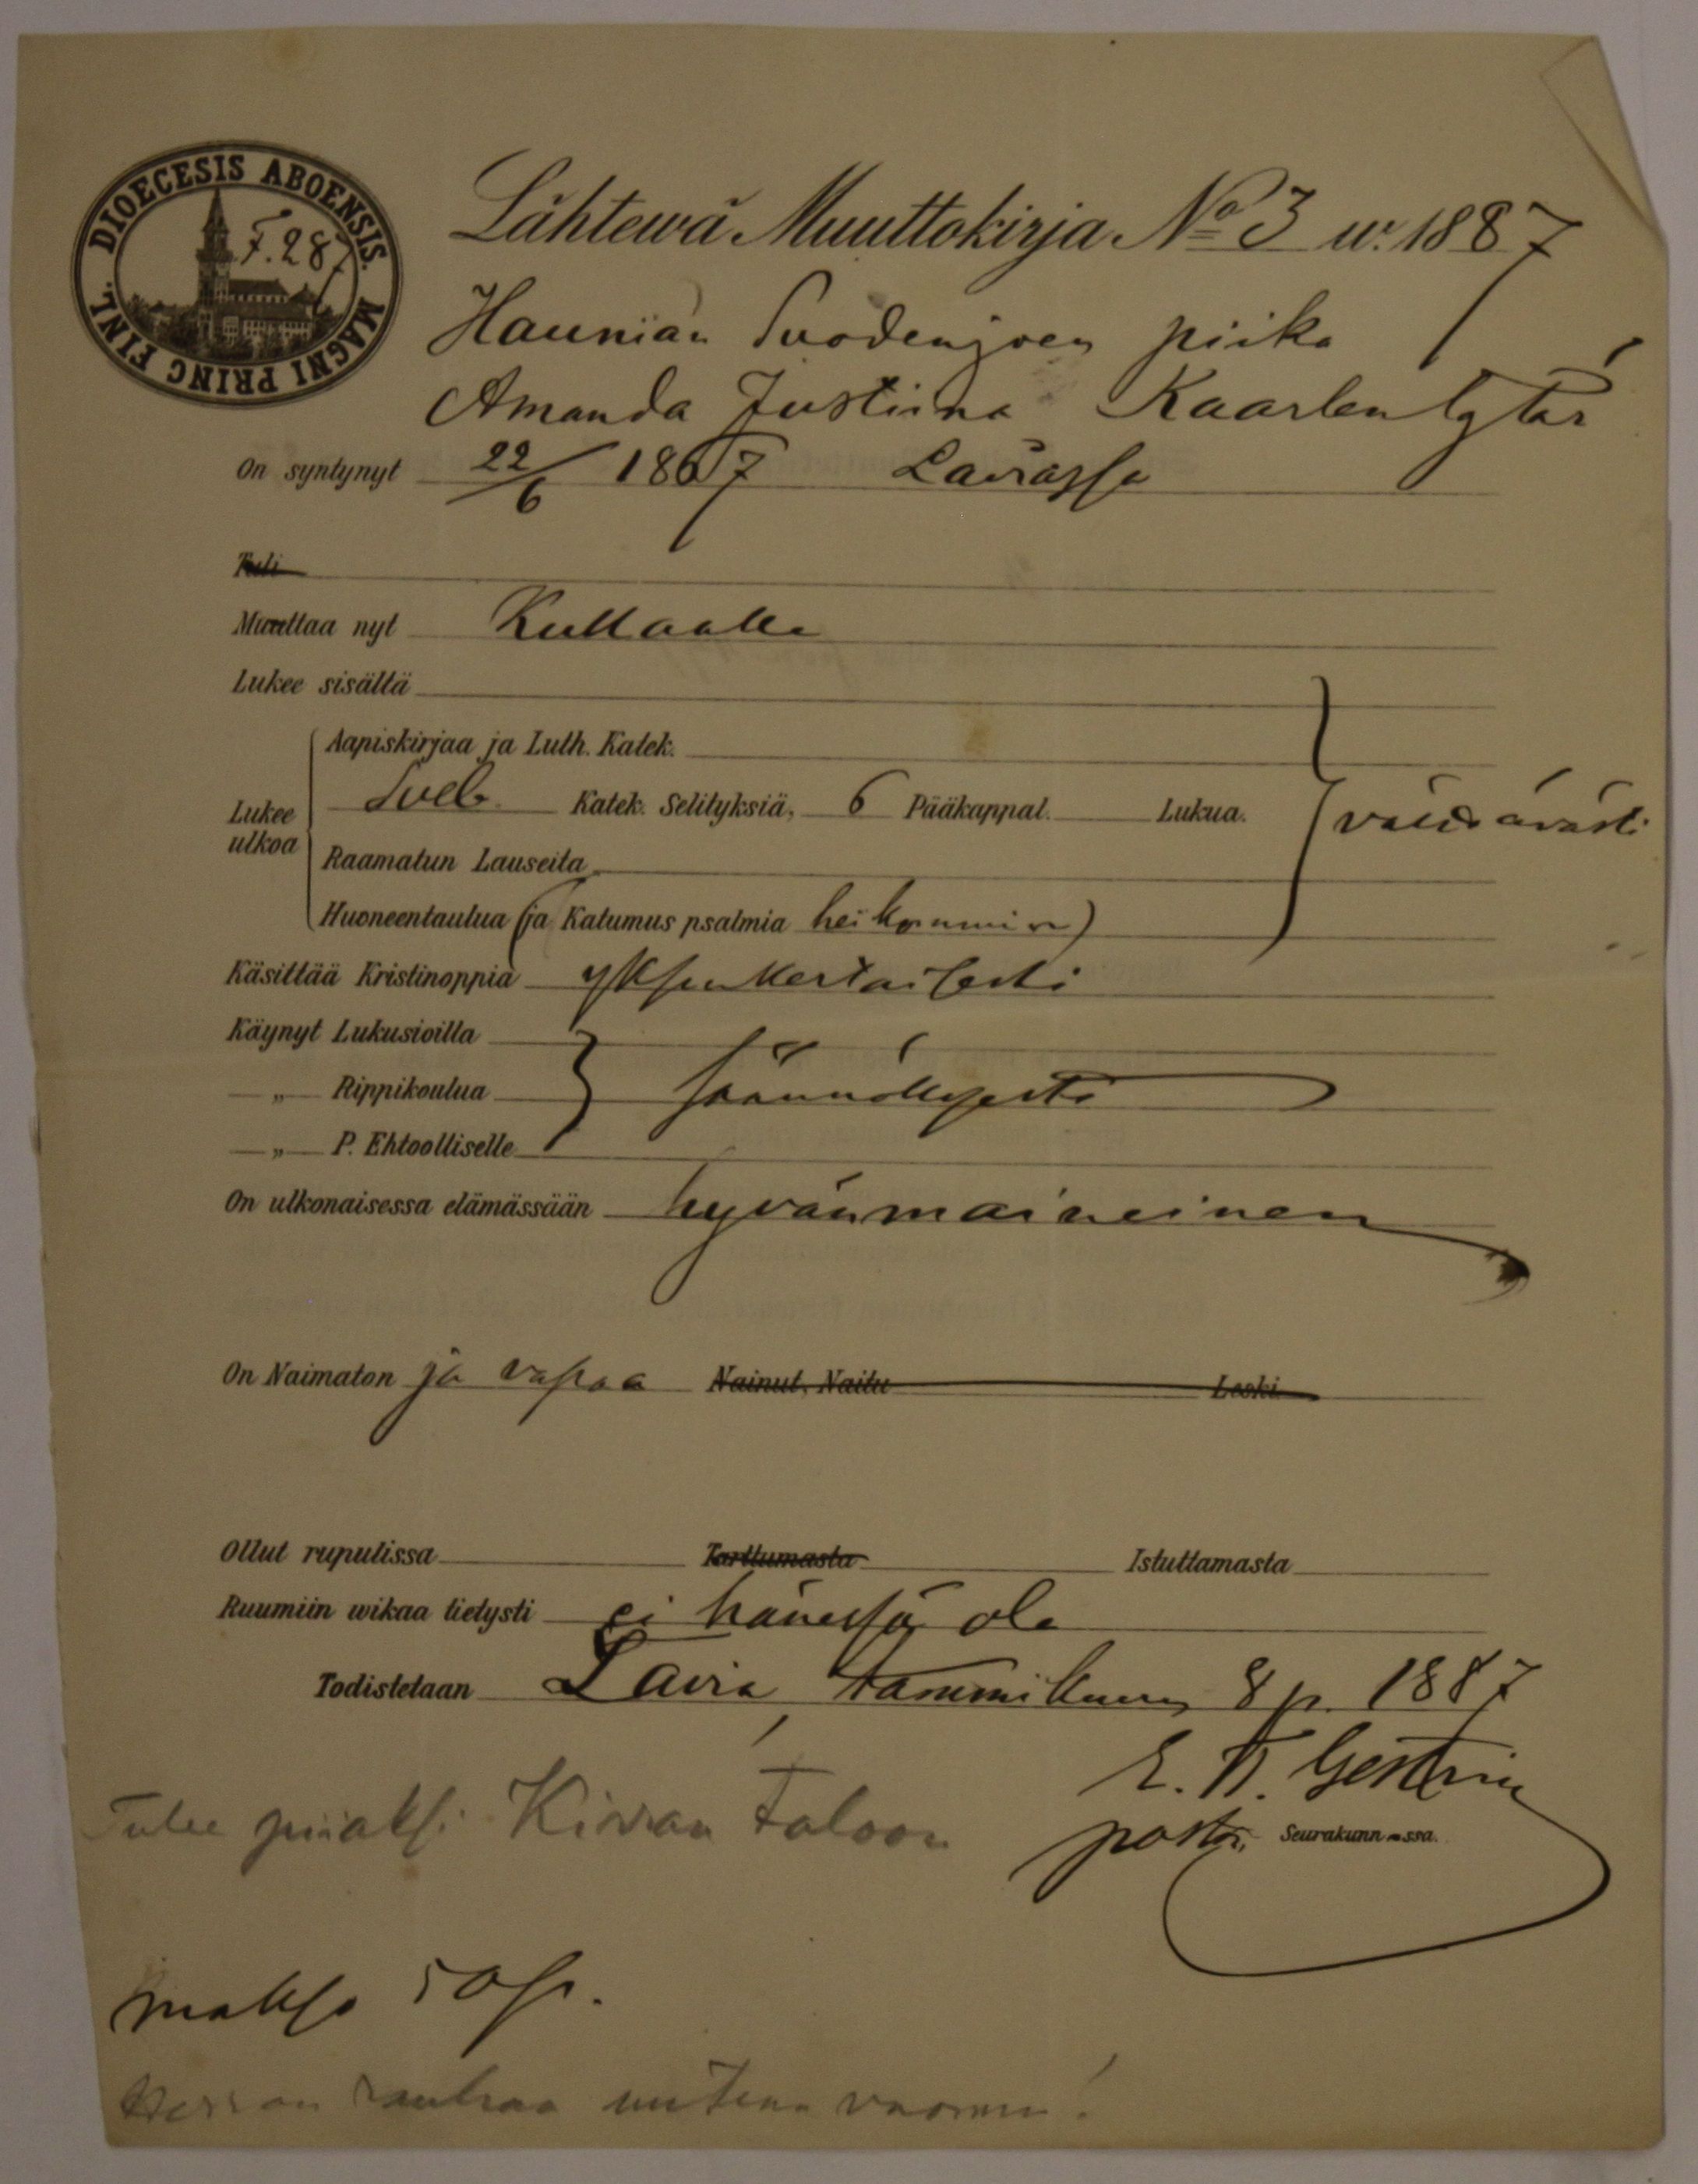 DIOECESIS ABOENSIS. MAGNI PRINC FINL.
F. 287
Lähtewä Muuttokirja No 3 w. 1887
Haunian Suodenjoen piika
Amanda Justiina Kaarlentytär
On syntynyt 22/6 1867 Laviassa
Tuli
Muuttaa nyt Kullaalle
Lukee sisältä
Aapiskirjaa ja Luth. Katek.
Lukee ulkoa Sveb. Katek. Selityksiä, 6 Pääkappal. Lukua. välttävästi
Raamatun Lauseita
Huoneentaulua (ja Katumus psalmia heikommin)
Käsittää Kristinoppia yksinkertaisesti
Käynyt Lukusioilla
„ Rippikoulua säännöllisesti
„ P. Ehtoolliselle
On ulkonaisessa elämässään hyvänmaineinen
On Naimaton ja vapaa Nainut, Naitu Leski
Ollut rupulissa Tarttumasta Istuttamasta
Ruumiin wikaa tietysti ei hänessä ole
Todistetaan Lavia tammikuun 8 p. 1887
E. W. Gestrin
pastor, Seurakunn ssa.
Tulee piiaksi Kivran taloon
maksa 50 p.
Herran rauhaa uutena vuonna!